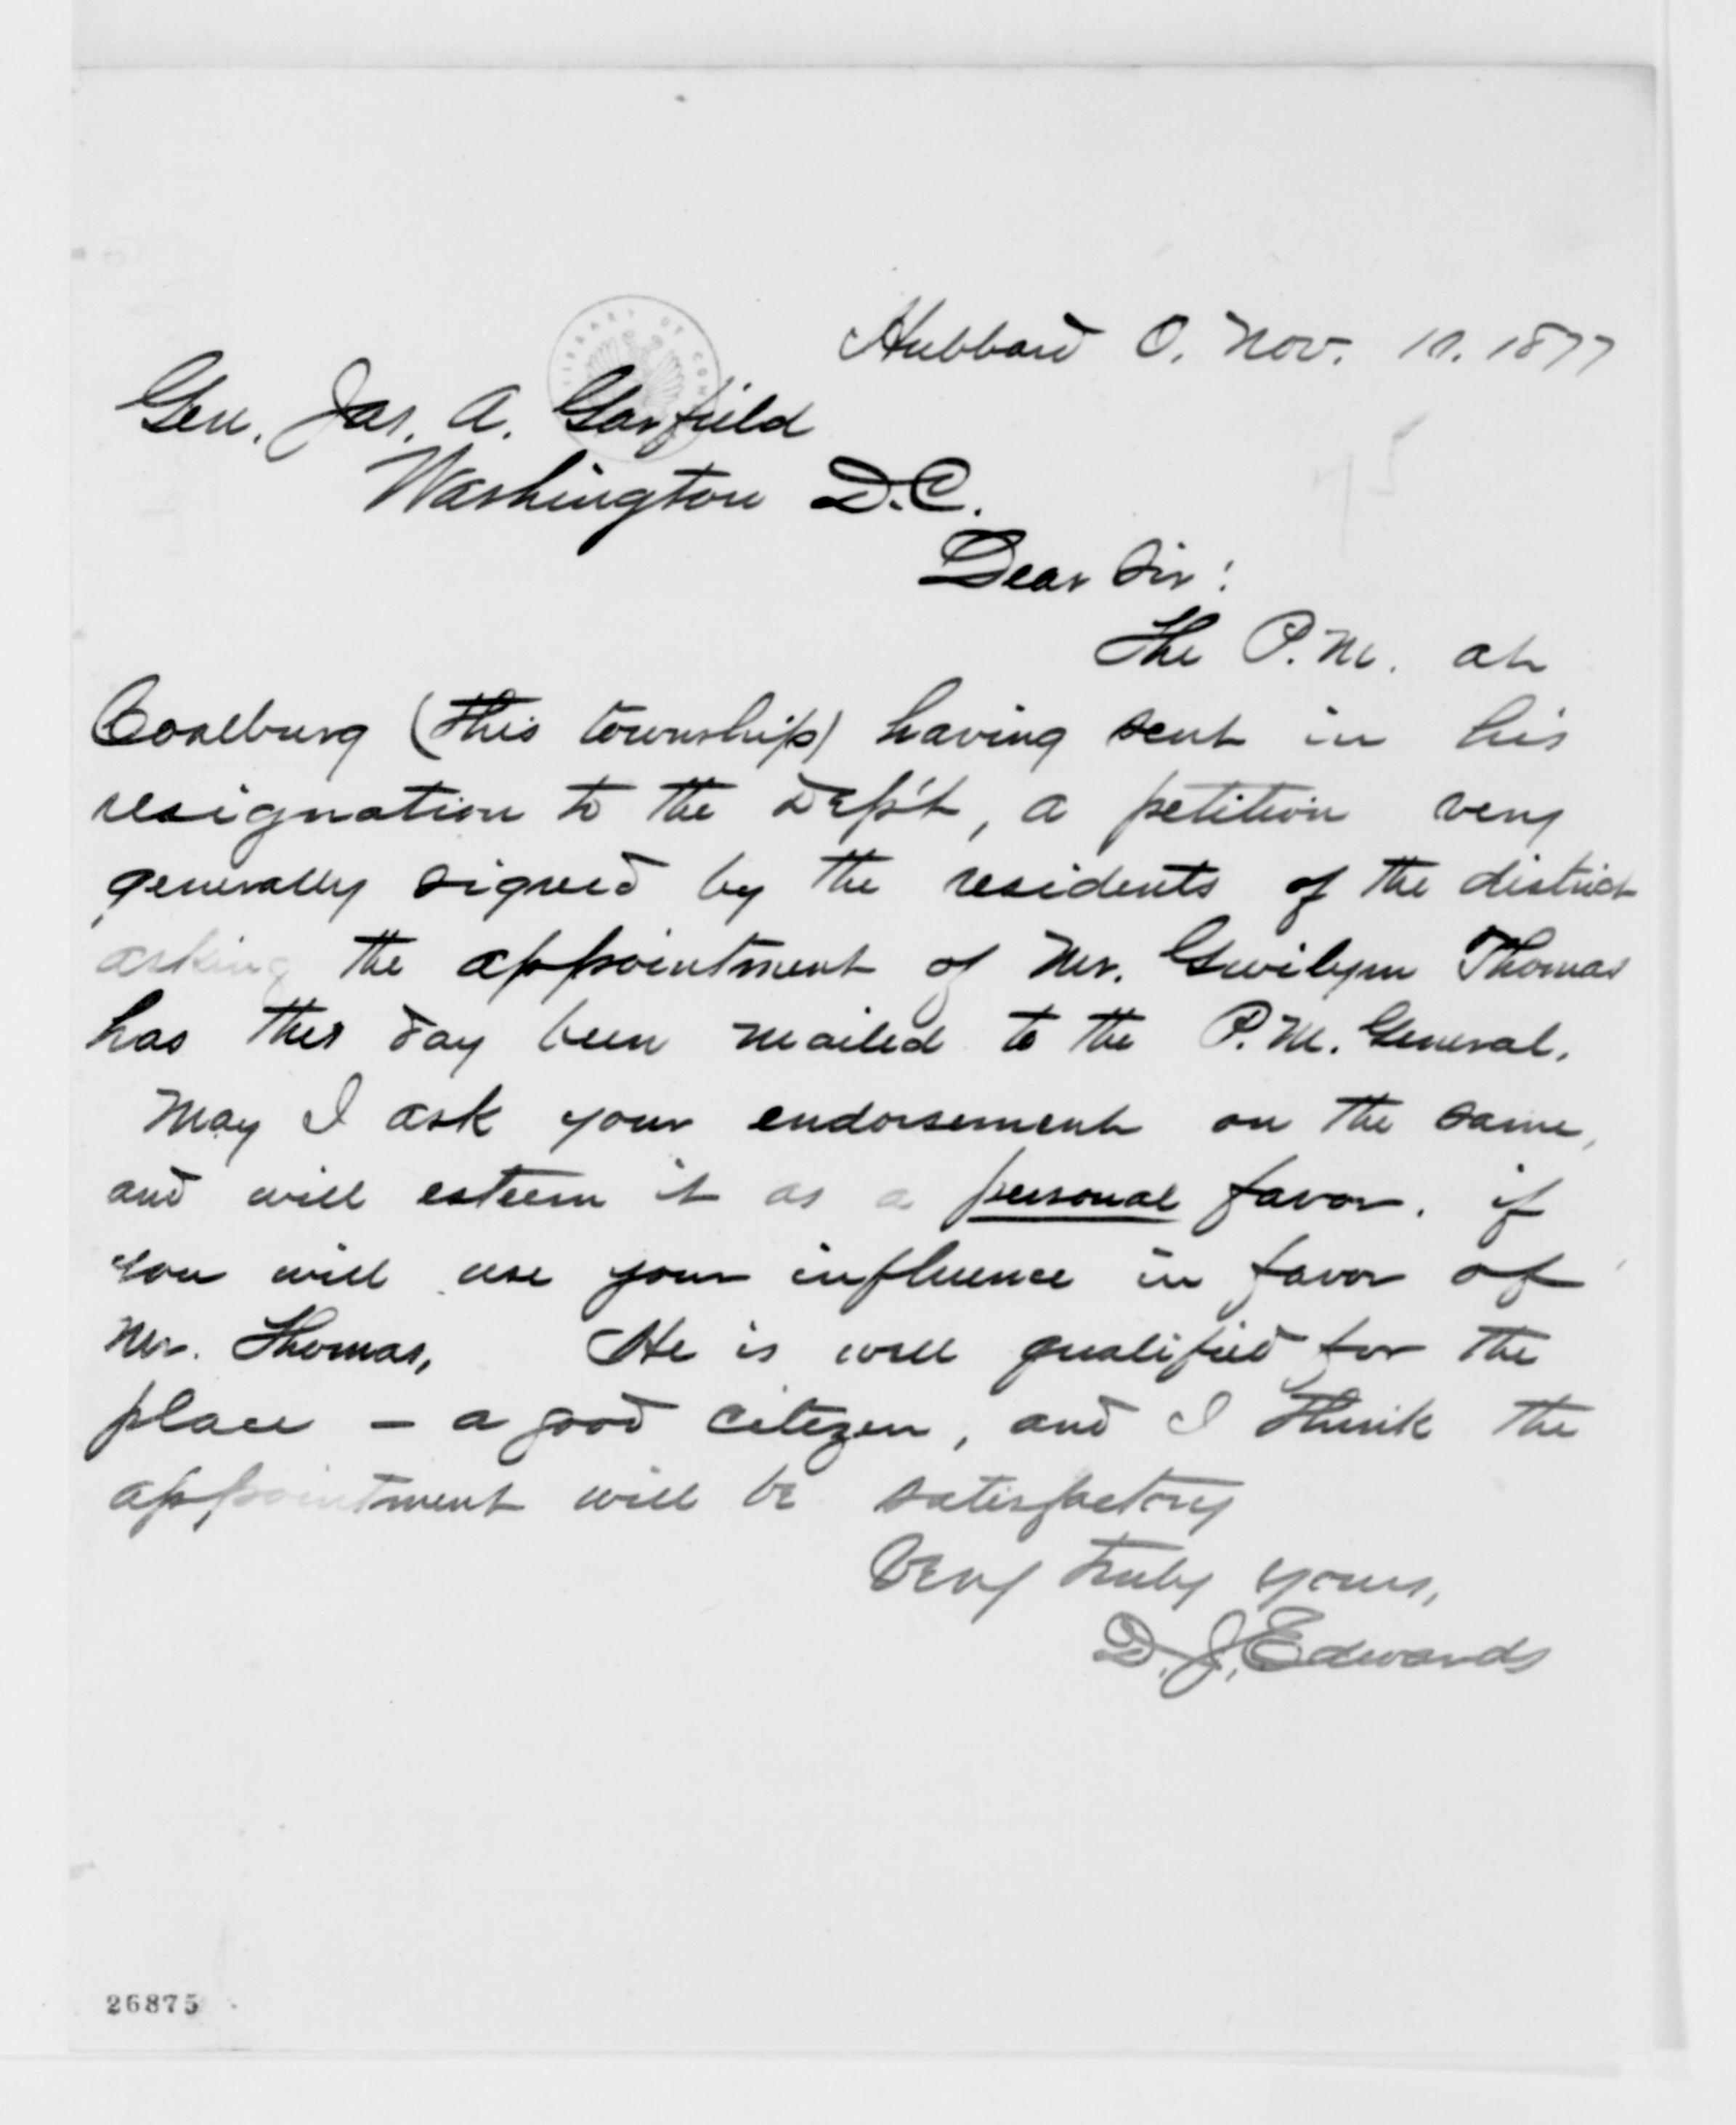 Hubbard O. Nov. 10. 1877
Gen. Jas. A. Garfield
Washington D.C.
Dear Sir:
The P.M. at
Coalburg (this township) having sent in his
resignation to the Dep't, a petition very
generally signed by the residents of the district
asking the appointment of Mr. Gwilym Thomas
has this day been mailed to the P.M. General.
May I ask your endorsement on the same,
and will esteem it as a personal favor. if
you will use your influence in favor of
Mr. Thomas, He is well qualified for the
place - a good citizen, and I think the
appointment will be satisfactory
Very truly yours,
D. J. Edwards
LIBRARY OF CON
26875